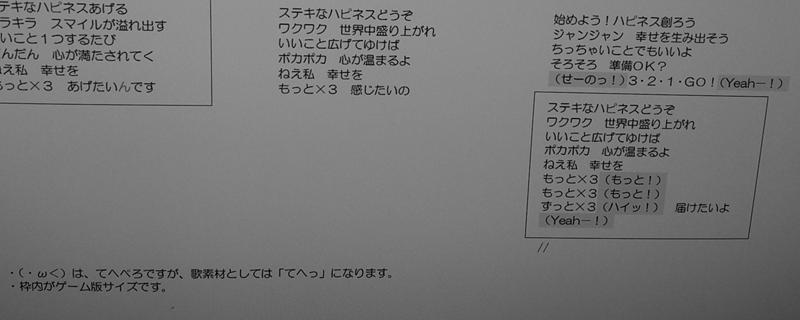 テキなハピネスあげる
ラキラ　スマイルが溢れ出す
いいこと１つするたび
んだん　心が満たされてく
ねえ私　幸せを
もっと×３　あげたいんです
ステキなハピネスどうぞ
ワクワク　世界中盛り上がれ
いいこと広げてゆけば
ポカポカ　心が温まるよ
ねえ私　幸せを
もっと×３　感じたいの
始めよう！ハピネス創ろう
ジャンジャン　幸せを生み出そう
ちっちゃいことでもいいよ
そろそろ　準備ＯＫ？
（せーのっ！）３・２・１・GO！（Yeahー！）
ステキなハピネスどうぞ
ワクワク　世界中盛り上がれ
いいこと広げてゆけば
ポカポカ　心が温まるよ
ねえ私　幸せを
もっと×３（もっと！）
もっと×３（もっと！）
ずっと×３（ハイッ！）　届けたいよ
（Yeahー！）
//
・（・ω＜）は、てへぺろですが、歌素材としては「てへっ」になります。
・枠内がゲーム版サイズです。